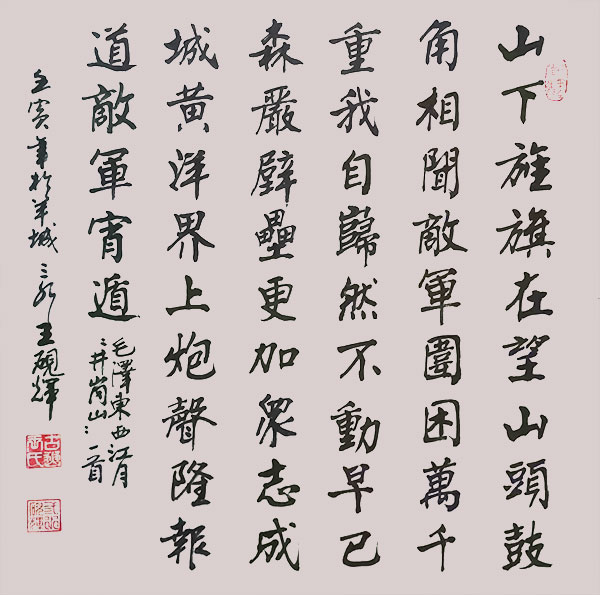 山下旌旗在望山頭鼓
角相聞敵軍圍困萬千
重我自巋然不動早已
森嚴壁壘更加衆志成
城黃洋界上炮聲隆報
道敵軍宵遁
毛澤東西江月
井崗山一首
壬寅年於羊城王硯輝